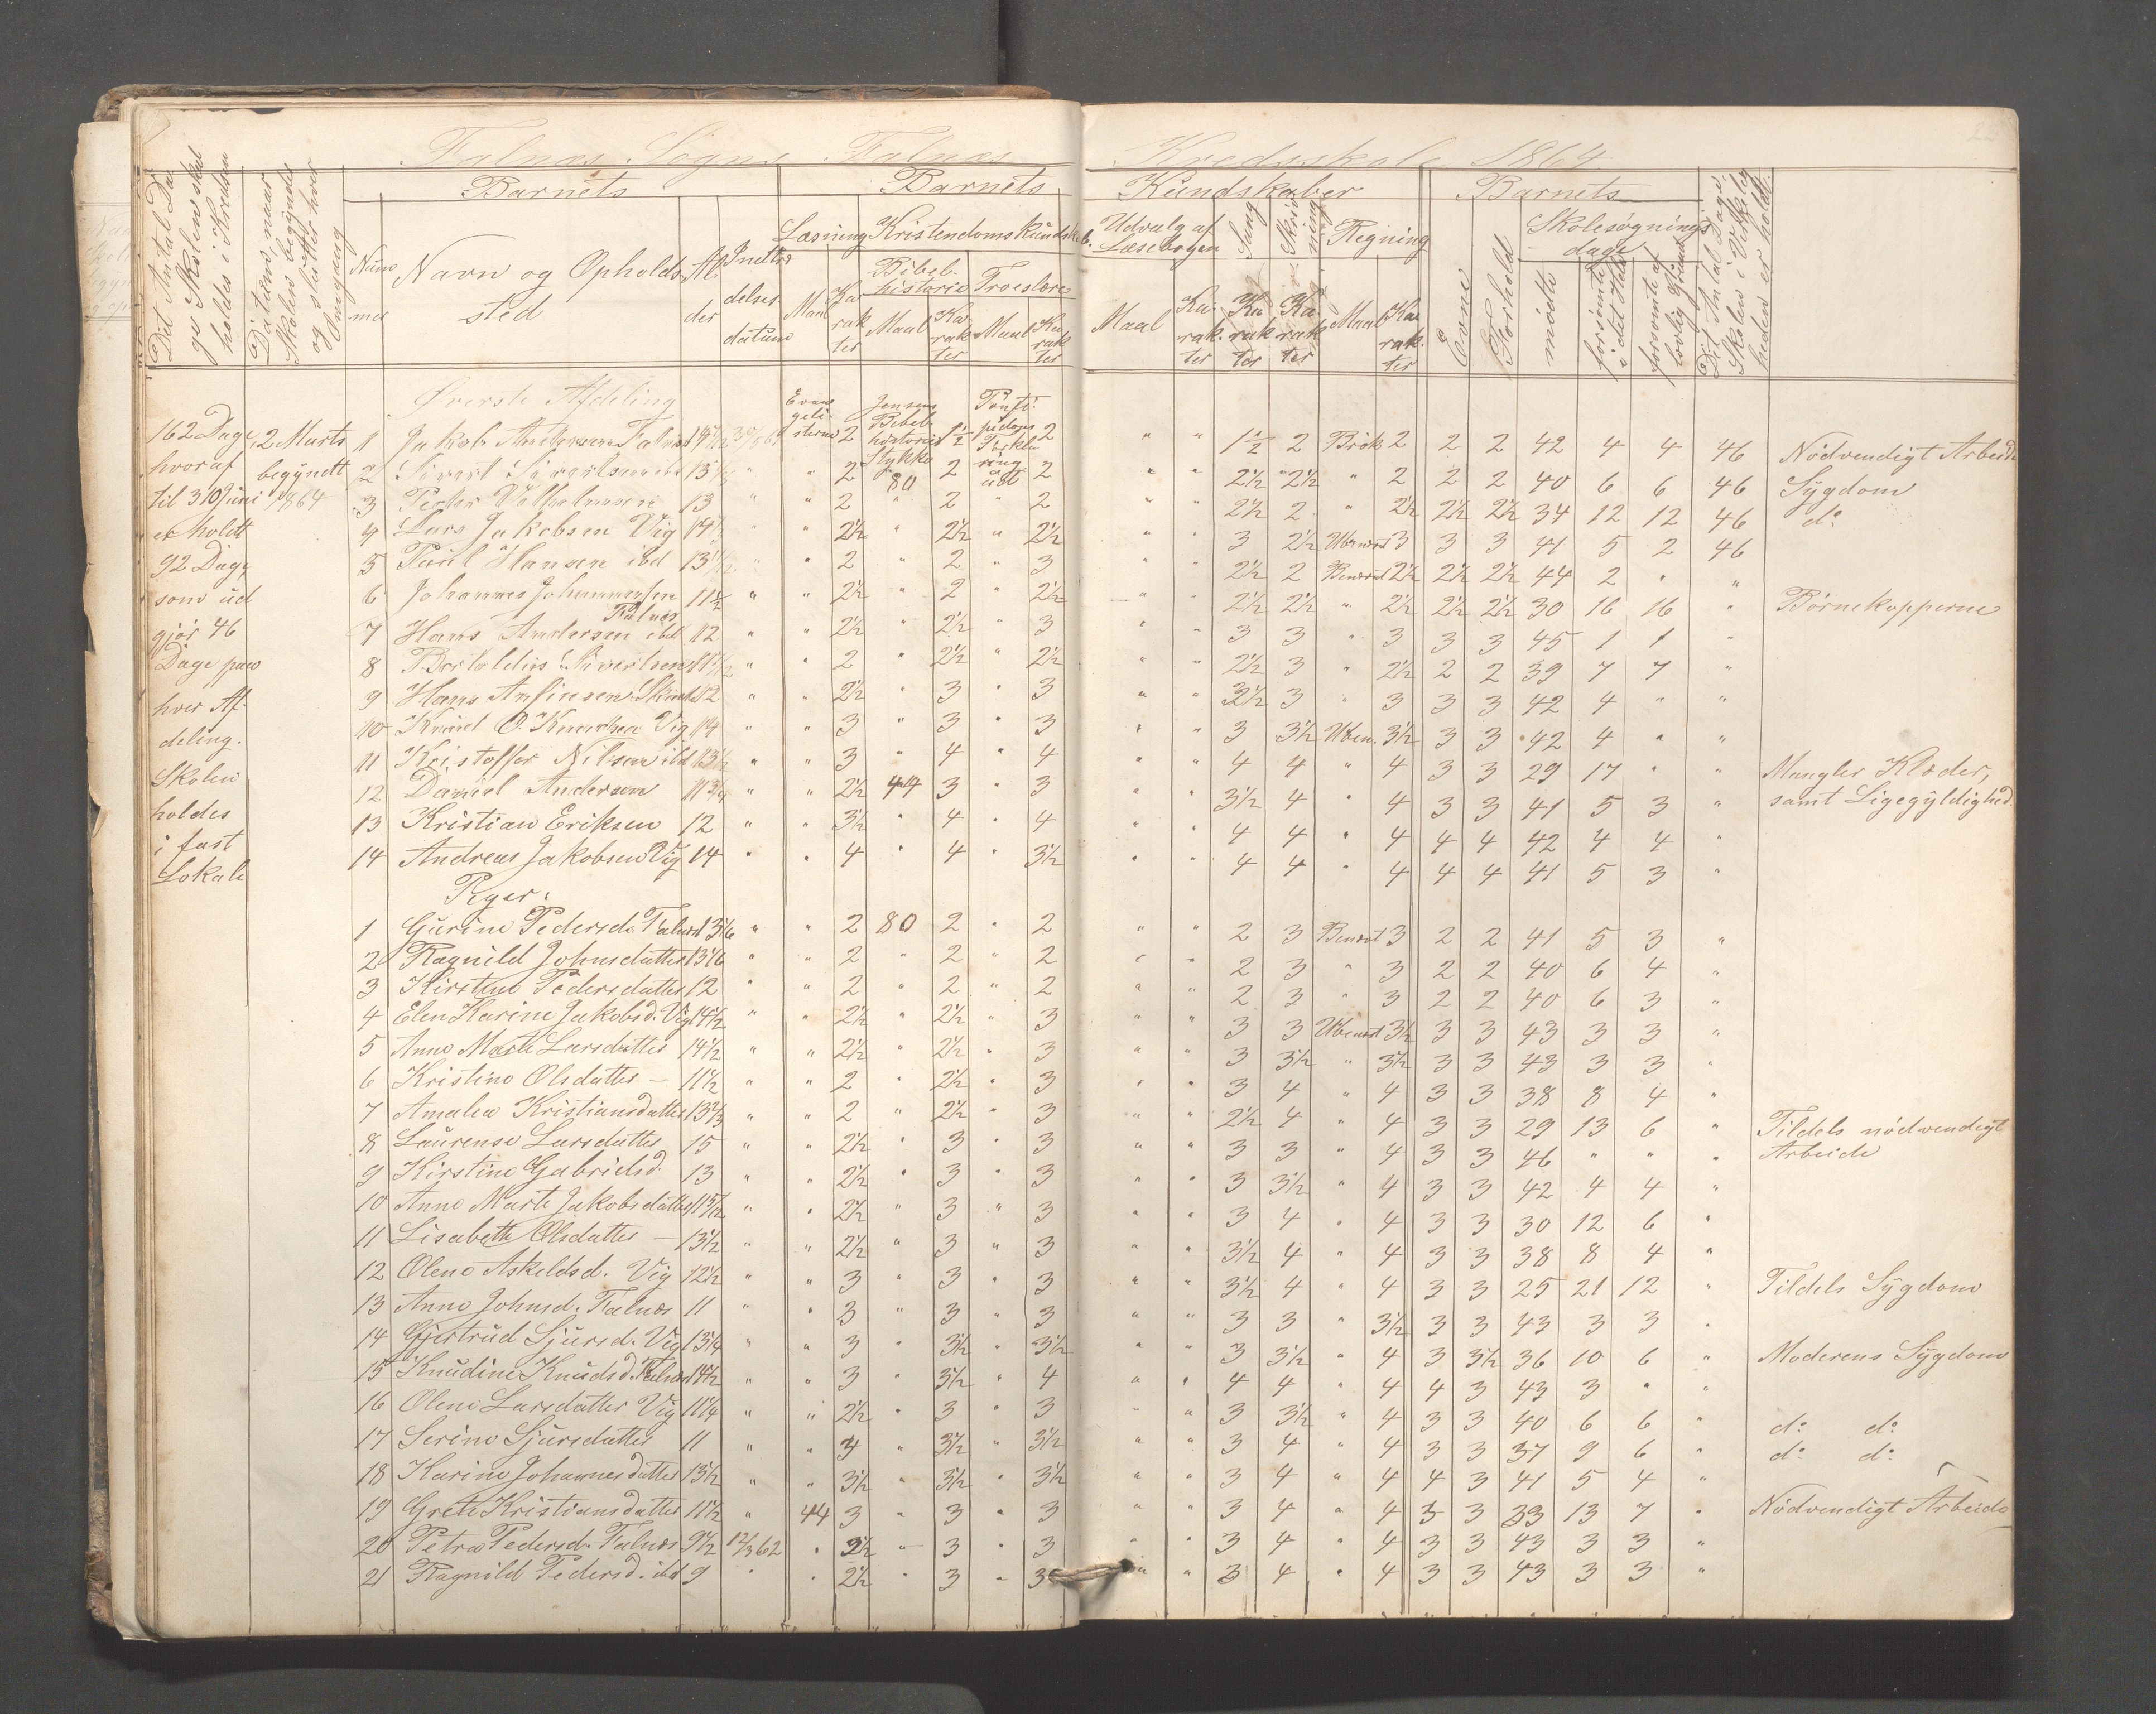 Falnæs Sogns Falnæs Kredsskole 1864.
Det Antal Dage Skolen skal holdes i Kredsen
Datum naar Skolen begyndes og slutter hver Omgang
Barnets
Barnets
Kundskaber
Barnets
Det Antal Dage Skolen i Virkeligheden er holdt.
Nummer
Navn og Opholdssted
Alder
Indtrædelses datum
Læsning
Kristendomskundsk.
Udvalg af Læsebogen
Sang
Skrivning
Regning
Evne
Forhold
Skolesøgningsdage
Bibelhistorie
Troeslære
mødte
forsømte i det Hele
forsømte af lovlig Grund
Maal
Karakter
Maal
Karakter
Maal
Karakter
Maal
Karakter
Karakter
Karakter
Maal
Karakter
162 Dage
hvoraf
til 30 Juni
er holdt
92 Dage,
som ud
gjør 46
Dage paa
hver Af-
deling.
Skolen
holdes
i fast
Lokale
2 Marts
begyndt
1864
Øverste Afdeling
Evangelisterne
Jensens Bibelhistorie Stykke 80
Pontoppidans Forklaring ud
1 Jakob Andersen Falnæs 2 1½ 2 " " 1½ 2 Brøk 2 2 2 42 4 4 46 Nödvendigt Arbeide
2 Sivert Sivertsen ibd " " 2 2 2 " " 2½ 2½ " 2 2 2 40 6 6 46 Sygdom
3 Peder 13 " " 2 " 2 2 " " 2½ 2 " 2½ 2½ 2½ 34 12 12 46 do
4 Lars Jakobsen Vig " " 2½ " 2½ " 2½ " " 3 2½ Ubenævnt 3 3 3 41 5 2 46
5 Paul Hansen ibd " " 2 " 2 " 3 " " 2½ 2 Benævnt 2½ 2½ 2½ 44 2 " "
6 Johannes Johannessen Falnæs 11½ " " 2½ " 2 " 2½ " " 2½ 2½ " 2½ 2½ 2½ 30 16 16 " Børnekopperne
7 Hans Andersen ibd 12 " " 2½ " 2½ " 3 " " 3 3 " 3 3 3 45 1 1 "
8 Bertoldus Sivertsen " " 2 " 2½ " 2½ " " 2½ 3 " 2½ 2 2 39 7 7 "
9 Hans Anfinsen 12 " " 2½ " 3 " 3 " " 3 " 3 3 3 42 4 " "
10 Knud O. Knudsen Vig 14 " " 3 " 3 " 3 " " 3 3½ Uben. 3½ 3 3 42 4 " "
11 Kristoffer Nilsen ibd 13½ " " 3 " 4 " 4 " " 4 4 " 4 3 3 29 17 " " Mangler Klæder,
12 Daniel Andersen 11¾ " " 2½ 44 3 " 3 " " 3½ 4 " 4 3 3 41 5 3 " samt Ligegyldighed.
13 Kristian Eriksen 12 " " 3½ " 4 " 4 " " 4 4 " 4 4 4 42 4 4 "
14 Andreas Jakobsen Vig 14 " " 4 " 4 " 3½ " " 4 4 " 4 4 4 41 5 3 "
Piger.
1 Gurine Pedersd. Falnæs 13 1/6 " " 2 80 2 " 2 " " 2 3 Benævnt 3 2 2 41 5 3 "
2 Ragnild Johnsdatter 13 1/6 " " 2 " 2 " 2 " " 2 3 " 3 2 2 40 6 4 "
3 Kirstine Pedersdatter 12 " " 2 " 2 " 2 " " 2 3 " 3 2 2 40 6 3 "
4 Elen Karine Jakobsd. Vig 14½ " " 2½ " 2½ " 3 " " 3 3 Ubenævnt 3½ 3 3 43 3 3 "
5 Anne Marte Larsdatter 14½ " " 2½ " 2½ " 3 " " 3 3½ " 3½ 3 3 43 3 3 "
6 Kristine Olsdatter – 11½ " " 2 " 2½ " 3 " " 3 4 " 4 3 3 38 8 4 "
7 Amalia Kristiansdatter 13⅔ " " 2 " 2½ " 3 " " 2½ 4 " 4 3 3 29 13 6 " Tildels nödvendigt
8 Laurense Larsdatter 15 " " 2½ " 3 " 3 " " 3 3 " 4 3 3 46 " " " Arbeide
9 Kirstine Gabrielsd. 13 " " 2½ " 3 " 3 " " 3 3½ " 4 3 3 42 4 4 "
10 Anne Marte Jakobsdatter " " 2½ " 3 " 3 " " 3 4 " 4 3 3 30 12 6 "
11 Lisabeth Olsdatter – 13½ " " 2½ " 3 " 3 " " 3½ 4 " 4 3 3 38 8 4 "
12 Olene Askeldsd. Vig 12½ " " 3 " 3 " 3 " " 3½ 4 " 4 3 3 25 21 12 " Tildels Sygdom
13 Anne Johnsd. Falnæs 11 " " 3 " 3 " 3 " " 3 3 " 3½ 3 3 43 3 3 "
14 Gjertrud Sjursd. Vig 13¼ " " 3 " 3½ " 3½ " " 3 3½ " 4 3 3½ 36 10 6 " Moderens Sygdom
15 Knudine Knudsd. Falnæs 14½ " " 3 " 3½ " 4 " " 4 4 " 4 4 3 43 3 " "
16 Oleni Larsdatter Vig 11¼ " " 2½ " 3 " 3 " " 3 3½ " 4 3 3 40 6 6 " do do
17 Serine Sjursdatter 11 " " 3 " 3½ " 3½ " " 3 4 " 4 3 3 37 9 6 " do do
18 Karine Johannesdatter 13½ " " 3½ " 3½ " 3½ " " 3 4 " 4 4 3 41 5 4 "
19 Grete Kristiansdatter 11½ " 44 3 " 3 " 3 " " 3 4 " 4 3 3 33 13 7 " Nödvendigt Arbeide
20 Petra Pedersd. Falnæs 9½ 12/3 62 " 2½ " 3 " 3 " " 3 4 " 4 3 3 43 3 3 "
21 Ragnild Pedersd. ibd 9 " " 2½ " 3 " 3 " " 3 4 " 4 3 3 43 3 3 "